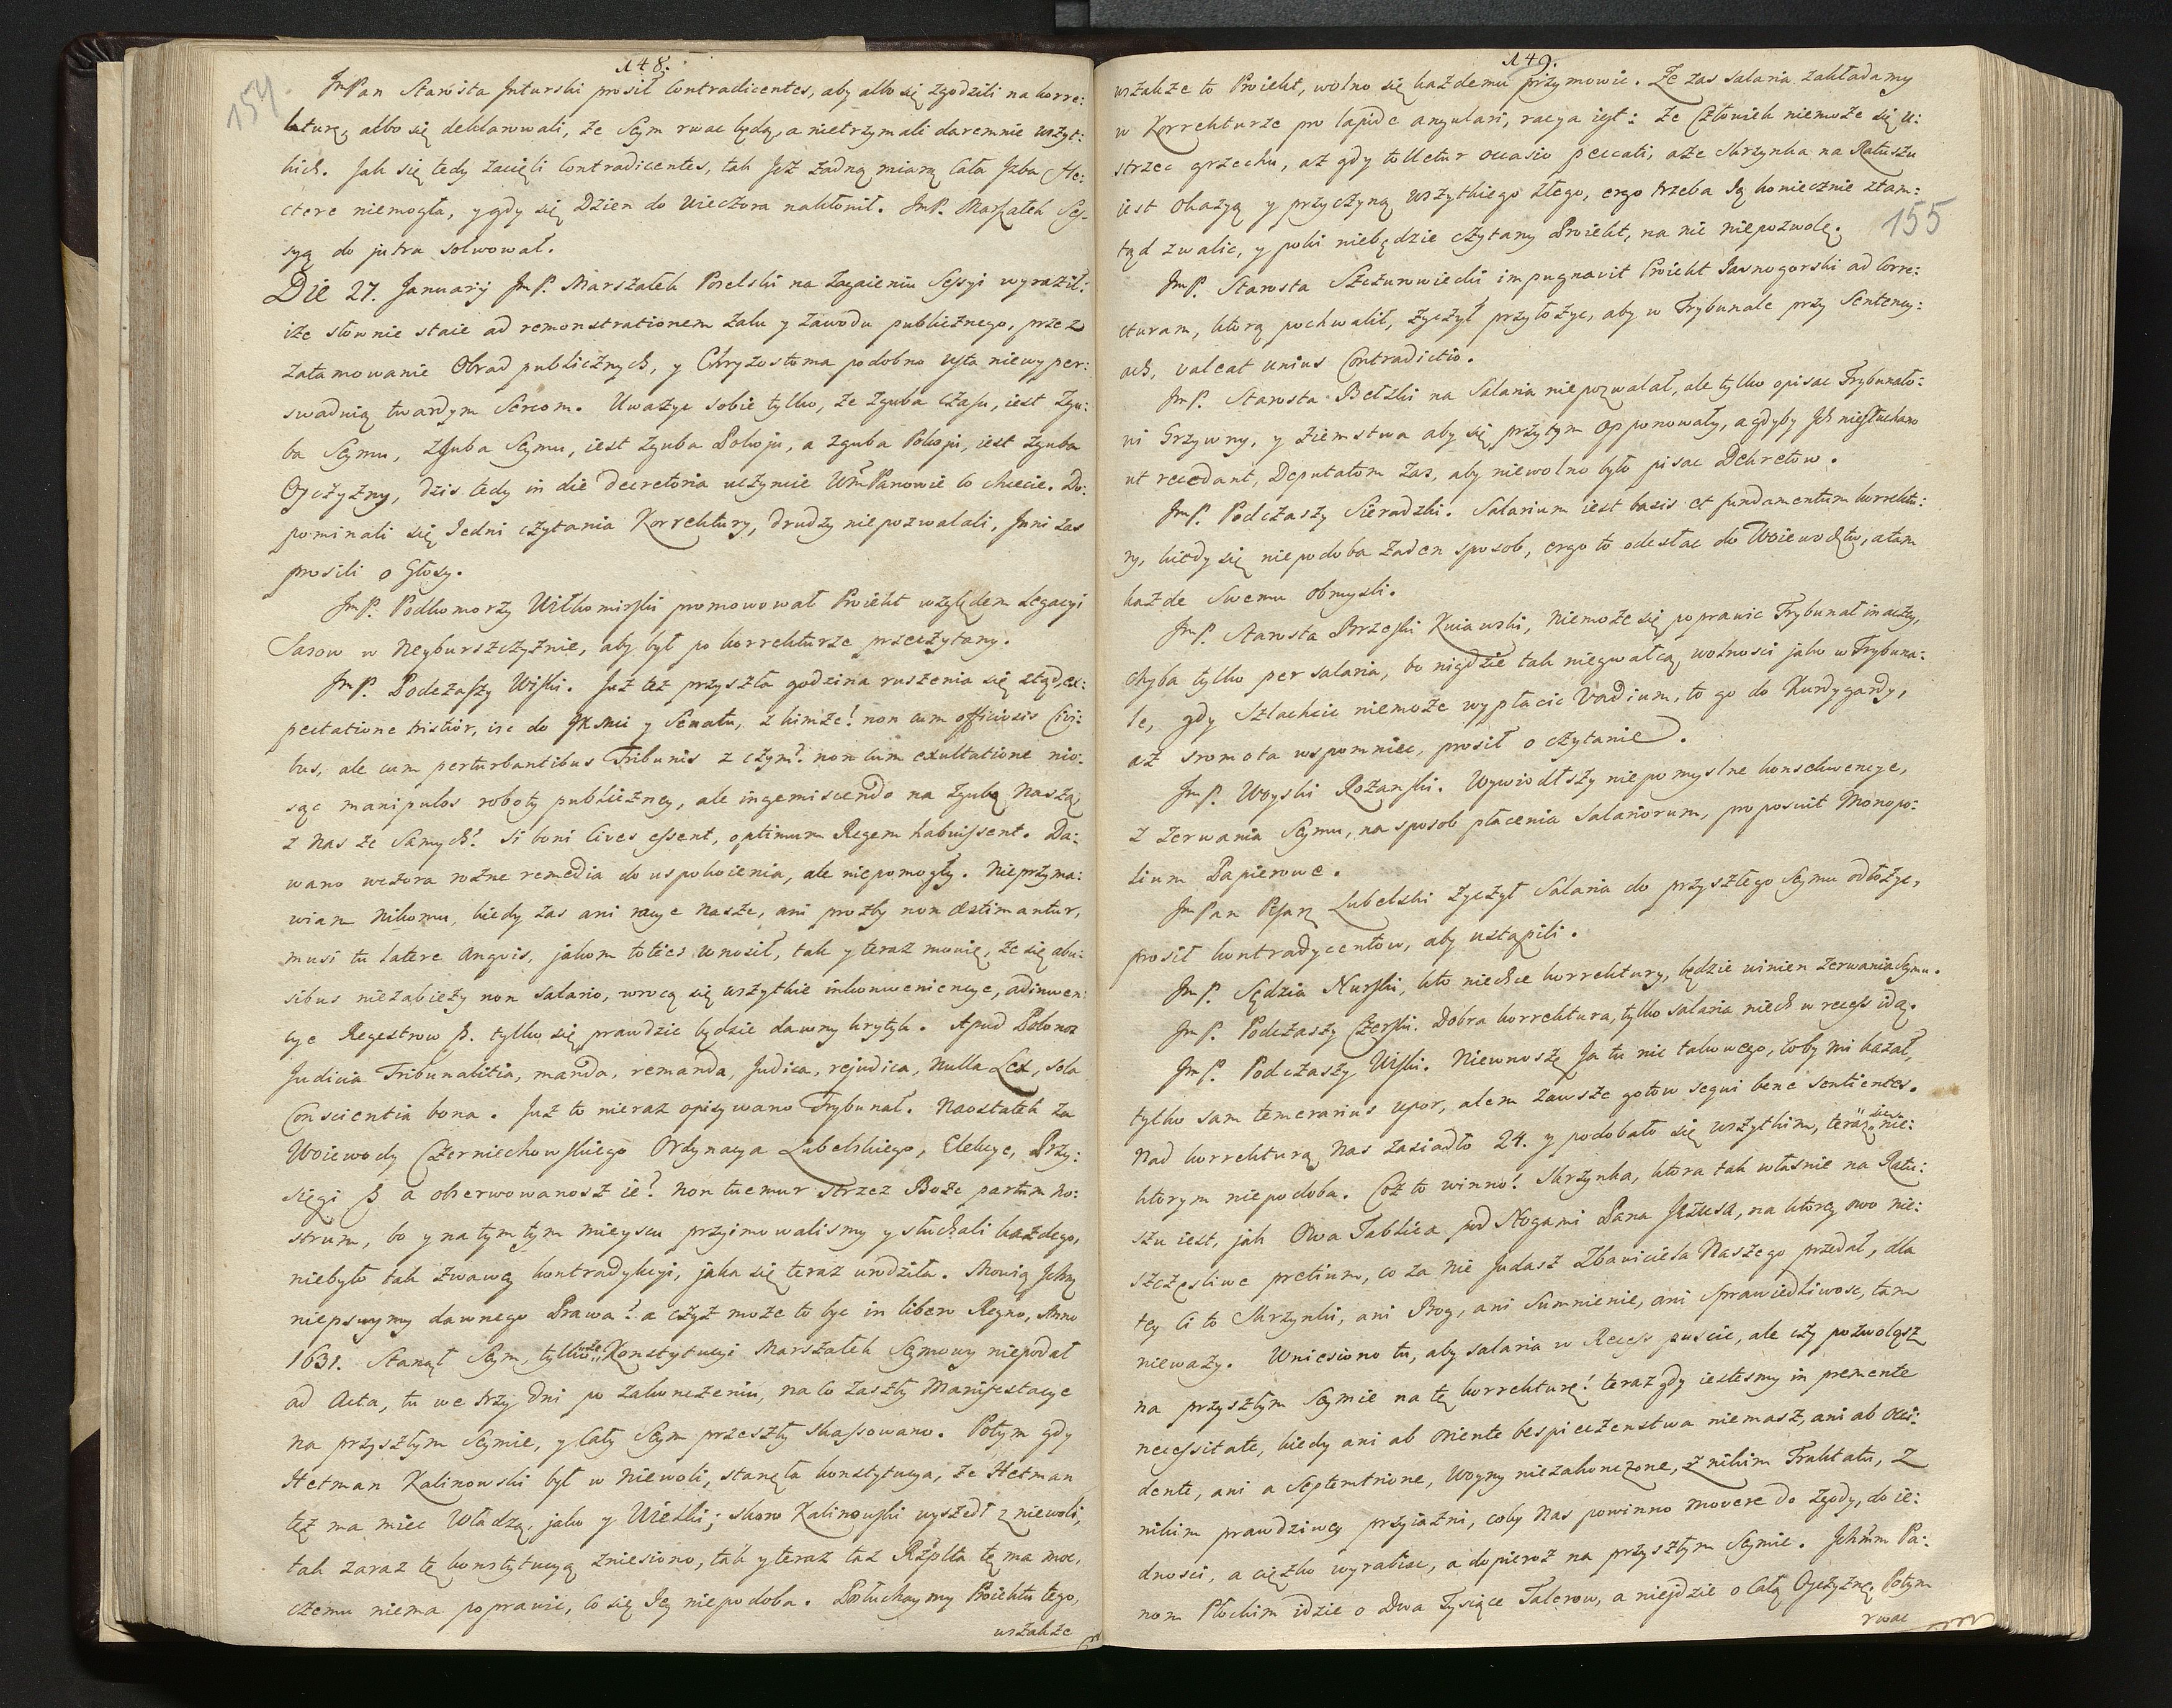 148.
154
JmPan Starosta Inturski prosił Contradicentes, aby albo się zgodzili na korre:
kturę, albo się deklarowali, że Seym rwac będą, a nietrzymali daremnie wszyt:
kich. Jak się tedy zacięli Contradicentes, tak Jch żadną miarą cała Jzba fle:
ctere niemogła, y gdy się Dzien do Wieczora nakłonił. JmP. Marszałek Ses-
syą do jutra solwował.
Die 27. January JmP. Marszałek Poselski na zagaieniu Sessyi wyraził:
iże słownie staie ad remonstrationem żalu y zawodu publicznego, przez
zatamowanie Obrad publicznych, y Chryzostoma podobno usta niewyper:
swadują twardym Sercom. Uważyc sobie tylko, że zguba czasu, iest zgu:
ba Seymu, zguba Seymu, iest zguba Pokoju, a zguba Pokoju, iest zguba
Oyczyzny, dzis tedy in die decretoria uczyncie WmPanowie co chcecie. Do:
pominali się Jedni czytania Korrektury, drudzy niepozwalali, Jnni zas
prosili o Głosy.
JmP. Podkomorzy Wiłkomirski promowował Proiekt względem Legacyi
Sasow w Neyburszczyznie, aby był po korrekturze przeczytany.
JmP. Podczaszy Wiski. Już też przyszła godzina ruszenia się ztąd, ex:
pectatione tristior, isc do JKMci y Senatu, z kimże! non cum officiosis Civi:
bus, ale cum perturbantibus Tribunis z czym? non cum exultatione nio:
sąc manipulos roboty publiczney, ale ingemiscendo na zgubę Naszą
z Nas że Samych! Si boni Cives essent, optimum Regem habuissent. Da:
wano wczora rożne remedia do uspokoienia, ale niepomogły. Nieprzyma:
wiam Nikomu, kiedy zas ani racye Nasze, ani prozby non æstimantur,
musi tu latere Angvis, jakom toties wnosił, tak y teraz mowię, że się abu:
sibus niezabieży non salario, wrocą się wszytkie inkonweniencye, adinwen:
cye Regestrow etc. tylko się prawdzic będzie dawny krytyk. Apud Polonos
Judicia Tribunalitia, manda, remanda, Judica, rejudica, Nulla Lex, sola
Conscientia bona. Już to nieraz opisywano Trybunał. Naostatek za
Woiewody Czerniechowskiego Ordynacya Lubelskiego, Elekcye, Przy:
sięgi etc. a obserwowanosz ie! Non tuemur strzeż Boże partem no:
strum, bo y na tym tym mieyscu przyimowalismy y słuchali każdego,
niebyło tak zwawey kontradykcyi, jaka się teraz urodziła. Mowią Jchmc
niepsuymy dawnego Prawa! a czyż może to byc in libero Regno, Anno
1631. Stanął Seym, tylko że Konstytucyi Marszałek Seymowy niepodał
ad Acta, tu we trzy dni po zakonczeniu, na co zaszły Manifestacye
na przyszłym Seymie, y cały Seym przeszły skassowano. Potym gdy
Hetman Kalinowski był w Niewoli, stanęła konstytucya, że Hetman
też ma miec Władzą, jako y Wielki; skoro Kalinowski wyszedł z niewoli,
tak zaraz tę konstytucyą zniesiono, tak y teraz taż Rzplta tę ma moc,
czemu niema poprawic, co się Jey niepodoba. Posłuchaymy Proiektu tego,
wszakże
149.
155
wszakże to Proiekt, wolno się każdemu przymowic. Że zas salaria zakładamy
w Korrekturze pro lapide angulari, racya iest: że Człowiek niemoże się u:
strzec grzechu, aż gdy tolletur occasio peccati, aże skrzynka na Ratuszu
iest okazyą y przyczyną wszytkiego złego, ergo trzeba Ją koniecznie ztam:
tąd zwalic, y poki niebędzie czytany Proiekt, na nic niepozwolę.
JmP. Starosta Szczurowiecki impugnavit Proiekt Jasnogorski ad Corre:
cturam, ktorą pochwalił, życzył przyłożyc, aby w Trybunale przy Sentency:
ach, valeat unius Contradictio.
JmP. Starosta Bełzki na Salaria niepozwalał, ale tylko opisac Trybunało:
wi Grzywny, y ziemstwa aby się przytym opponowały, a gdyby Jch niesłuchano
ut recedant, Deputatom zas, aby niewolno było pisac Dekretow.
JmP. Podczaszy Sieradzki. Salarium iest basis et fundamentum korrektu:
ry, kiedy się niepodoba żaden sposob, ergo to odesłac do Woiewodztw, a tam
każde Swemu obmysli.
JmP. Starosta Brzeski Kuiawski, Niemoże się poprawic Trybunał inaczey,
chyba tylko per salaria, bo nigdzie tak niegwałcą wolnosci jako w Trybuna:
le, gdy Szlachcic niemoże wypłacic Vadium, to go do Kurdygardy,
aż sromota wspomniec, prosił o czytanie.
JmP. Woyski Rożanski. Wywiodłszy niepomyslne konsekwencye,
z zerwania Seymu, na sposob płacenia Salariorum, proposuit Monopo:
lium Papierowe.
JmPan Pisarz Lubelski życzył Salaria do przyszłego Seymu odłożyc,
prosił kontradycentow, aby ustąpili.
JmP. Sędzia Nurski, kto niechce korrektury, będzie winien zerwania Seymu.
JmP. Podczaszy Czerski. Dobra korrektura, tylko salaria niech w recess idą.
JmP. Podczaszy Wiski. Niewnoszę Ja tu nic takowego, coby mi kazał,
tylko sam temerarius upor, alem zawsze gotow sequi bene sentientes.
Nad korrekturą Nas zasiadło 24. y podobało się wszytkim, teraz się nie:
ktorym niepodoba. Coż to winno! Skrzynka, ktora tak własnie na Ratu:
szu iest, jak Owa Tablica pod Nogami Pana Jezusa, na ktorey owo nie:
szczęsliwe pretium, co za nie Judasz Zbawiciela Naszego przedał, dla
tey ci to Skrzynki, ani Bog, ani Sumnienie, ani Sprawiedliwosc, tam
nieważy. Wniesiono tu, aby salaria w Recess puscic, ale czy pozwoląsz
na przyszłym Seymie na tę korrekturę! teraz gdy iestesmy in premente
necessitate, kiedy ani ab Oriente bespieczenstwa niemasz, ani ab Occi:
dente, ani a Septemtrione, Woyny niezakonczone, z nikim Traktatu, z
nikim prawdziwey przyiazni, coby Nas powinno movere do zgody, do ie:
dnosci, a ciężko wyrabiac, a dopieroż na przyszłym Seymie. Jchmm Pa:
nom Płockim idzie o Dwa Tysiące Talerow, a niejdzie o całą Oyczyznę. Potym
rwac